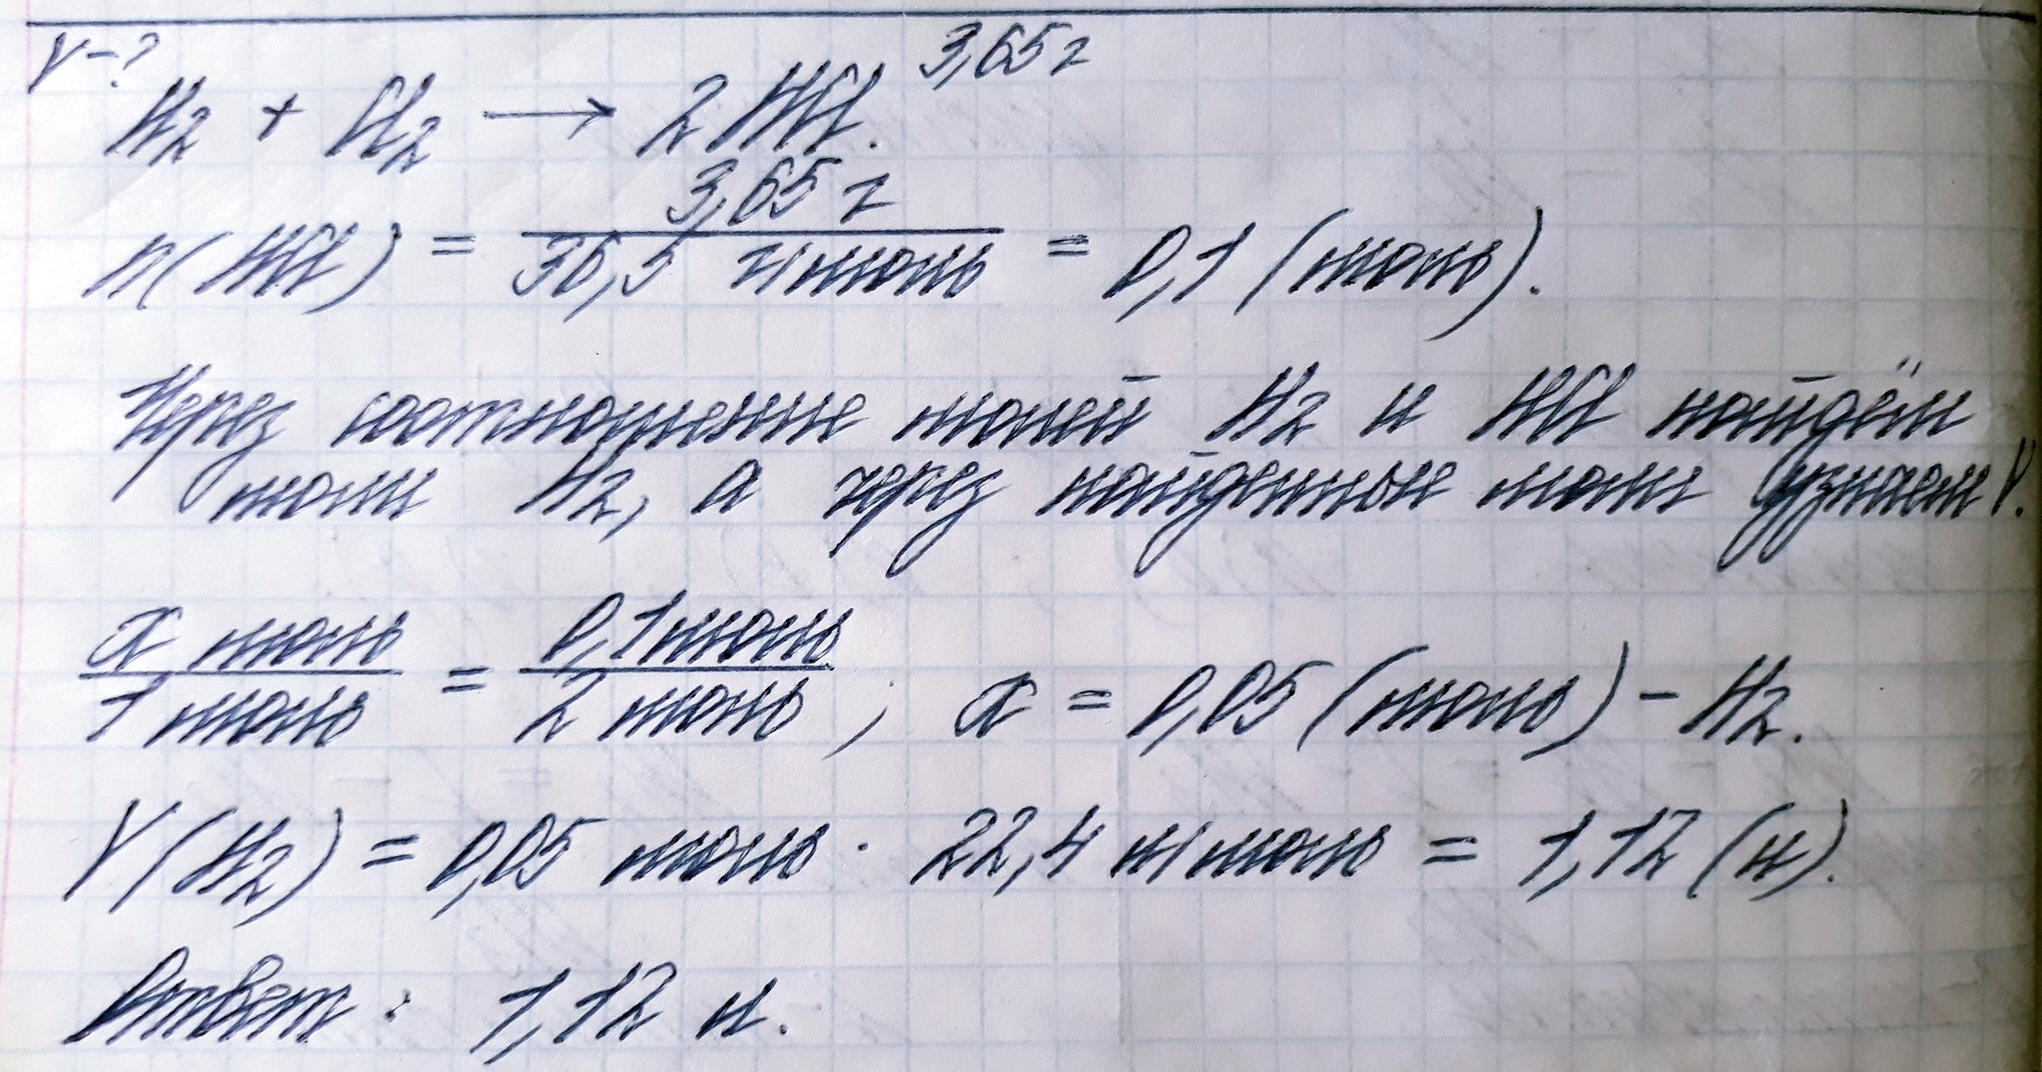 V-?
3,65 г
H₂ + Cl₂ → 2HCl.
n(HCl) = 3,65 г / 36,5 г/моль = 0,1 (моль).
Через соотношение молей H₂ и HCl найдём
моли H₂, а через найденные моли узнаем V.
x моль / 1 моль = 0,1 моль / 2 моль ; x = 0,05 (моль) - H₂.
V(H₂) = 0,05 моль · 22,4 л/моль = 1,12 (л).
Ответ: 1,12 л.